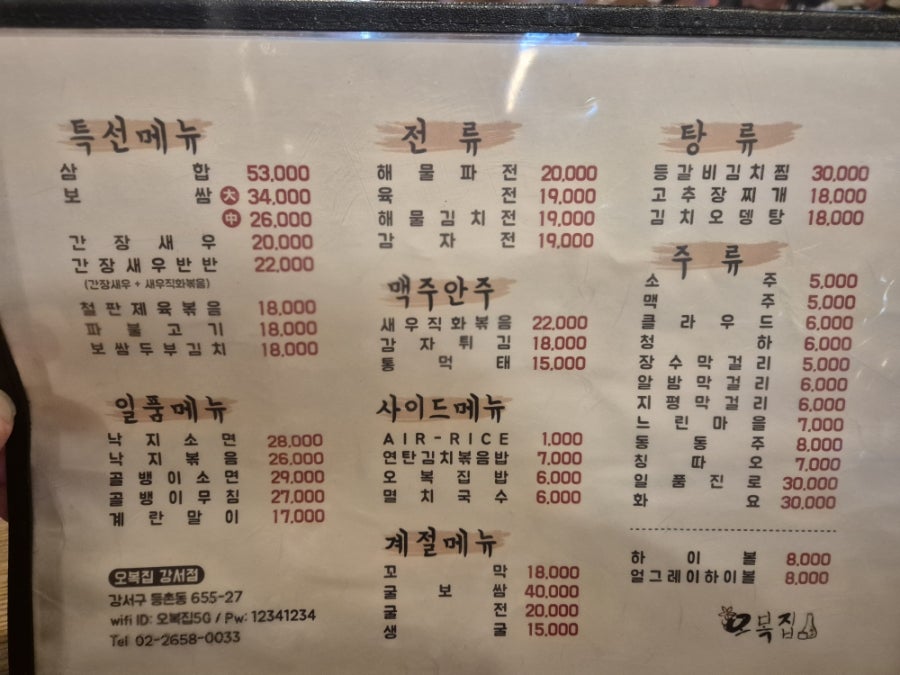 특선메뉴
삼합 53,000
보쌈 大 34,000
中 26,000
간장새우 20,000
간장새우반반 22,000
(간장새우 + 새우직화볶음)
철판제육볶음 18,000
파불고기 18,000
보쌈두부김치 18,000
일품메뉴
낙지소면 28,000
낙지볶음 26,000
골뱅이소면 29,000
골뱅이무침 27,000
계란말이 17,000
오복집 강서점
강서구 등촌동 655-27
wifi ID: 오복집5G / Pw: 12341234
Tel 02-2658-0033
전류
해물파전 20,000
육전 19,000
해물김치전 19,000
감자전 19,000
맥주안주
새우직화볶음 22,000
감자튀김 18,000
통먹태 15,000
사이드메뉴
AIR-RICE 1,000
연탄김치볶음밥 7,000
오복집밥 6,000
멸치국수 6,000
계절메뉴
꼬막 18,000
굴보쌈 40,000
굴전 20,000
생굴 15,000
탕류
등갈비김치찜 30,000
고추장찌개 18,000
김치오뎅탕 18,000
주류
소주 5,000
맥주 5,000
클라우드 6,000
청하 6,000
장수막걸리 5,000
알밤막걸리 6,000
지평막걸리 6,000
느린마을 7,000
동동주 8,000
칭따오 7,000
일품진로 30,000
화요 30,000
하이볼 8,000
얼그레이하이볼 8,000
오복집